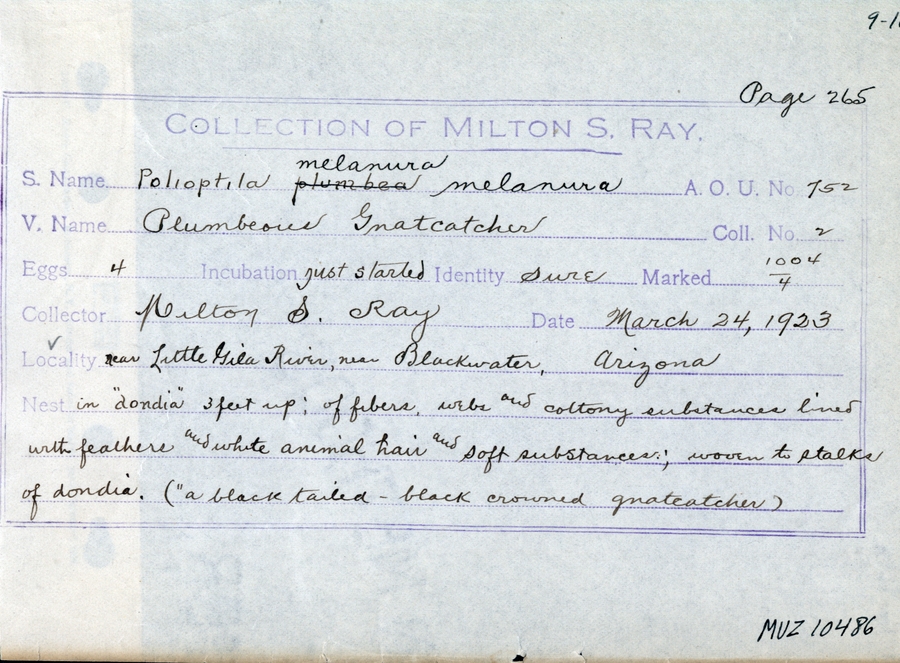 Page 265
COLLECTION OF MILTON S. RAY.
melanura
S. Name Polioptila plumbea melanura A. O. U. No. 752
V. Name Plumbeous Gnatcatcher Coll. No. 2
Eggs 4 Incubation just started Identity Sure Marked 1004/4
Collector Milton S. Ray Date March 24, 1923
Locality near Little Gila River, near Blackwater, Arizona
Nest in "dondia" 3 feet up; of fibers, webs and cottony substances lined
with feathers and white animal hair and soft substances; woven to stalks
of dondia. ("a black tailed - black crowned gnatcatcher)
MVZ 10486